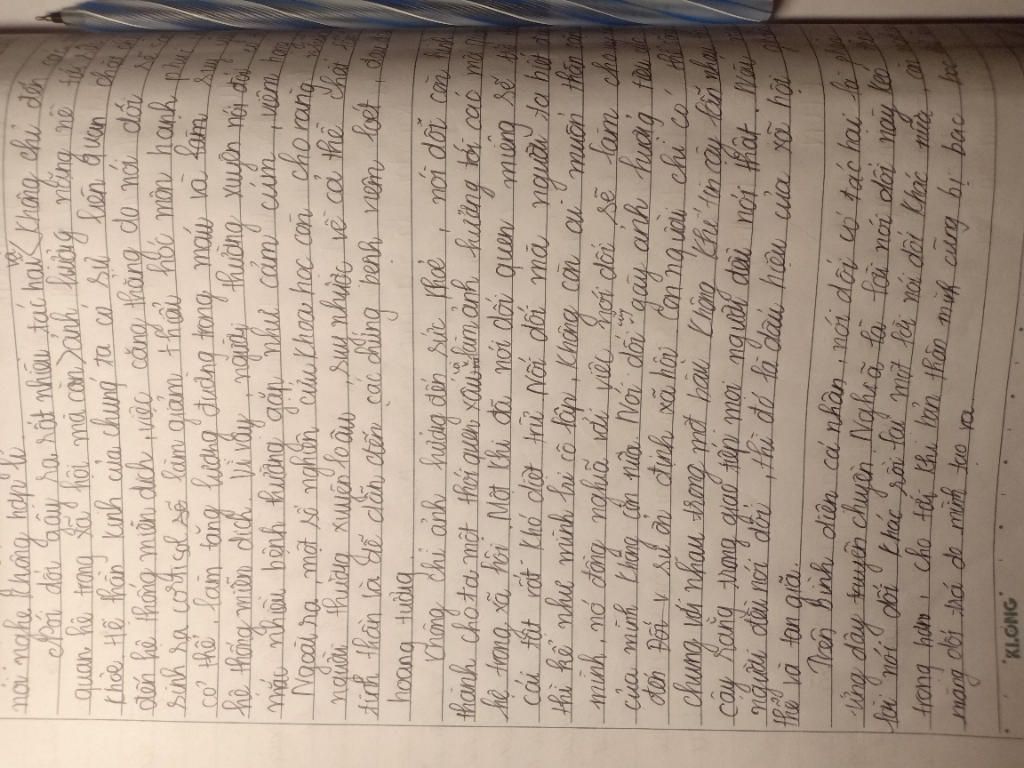 nói nghe không hợp lí.
Nói dối gây ra rất nhiều tác hại. Nó không chỉ đến
quan hệ trong xã hội mà còn ảnh hưởng nặng nề tới
khỏe tế thần kinh của chúng ta có sự liên quan chặt
đến hệ thống miễn dịch, việc căng thẳng do nói dối
sinh ra cortisol sẽ làm giảm thiểu hóc môn hạnh phúc
cơ thể, làm tăng lượng đường trong máu và suy
hệ thống miễn dịch. Vì vậy, người thường xuyên nói dối
mắc nhiều bệnh thường gặp như cảm cúm, viêm họng
Ngoài ra, một số nghiên cứu khoa học còn cho rằng
người thường xuyên lo âu, suy nhược về cả thể chất
tinh thần là dễ dẫn đến các chứng bệnh viêm loét,
hoang tưởng
Không chỉ ảnh hưởng đến sức khoẻ, nói dối còn hình
thành cho ta một thói quen xấu và làm ảnh hưởng tới các mối
hệ trong xã hội. Một khi đã nói dối quen miệng sẽ
cái tật rất khó dứt từ. Nói dối mà người ta biết
thì kể như mình bị cô lập, không còn ai muốn thân
mình, nó đồng nghĩa với việc nói dối sẽ làm cho
của mình không còn nữa. Nói dối cũng gây ảnh hưởng tiêu
đến đối x sự ổn định xã hội. Con người chỉ có thể
chung với nhau trong một bầu không khí tin cậy lẫn nhau
cậy rằng trong giao tiếp mọi người đều nói thật. Nếu
người đều nói dối, thì đó là dấu hiệu của xã hội
thế và tan giã.
Trên bình diện cá nhân, nói dối có tác hại
ứng dây truyền chuyện. Nghĩa là lời nói dối này kéo
lời nói dối khác sau lại một lời nói dối khác nữa,
trong hơn, cho tới khi bản thân mình cũng bị bao bọc
màng dối trá do mình tạo ra.
"KLONG"